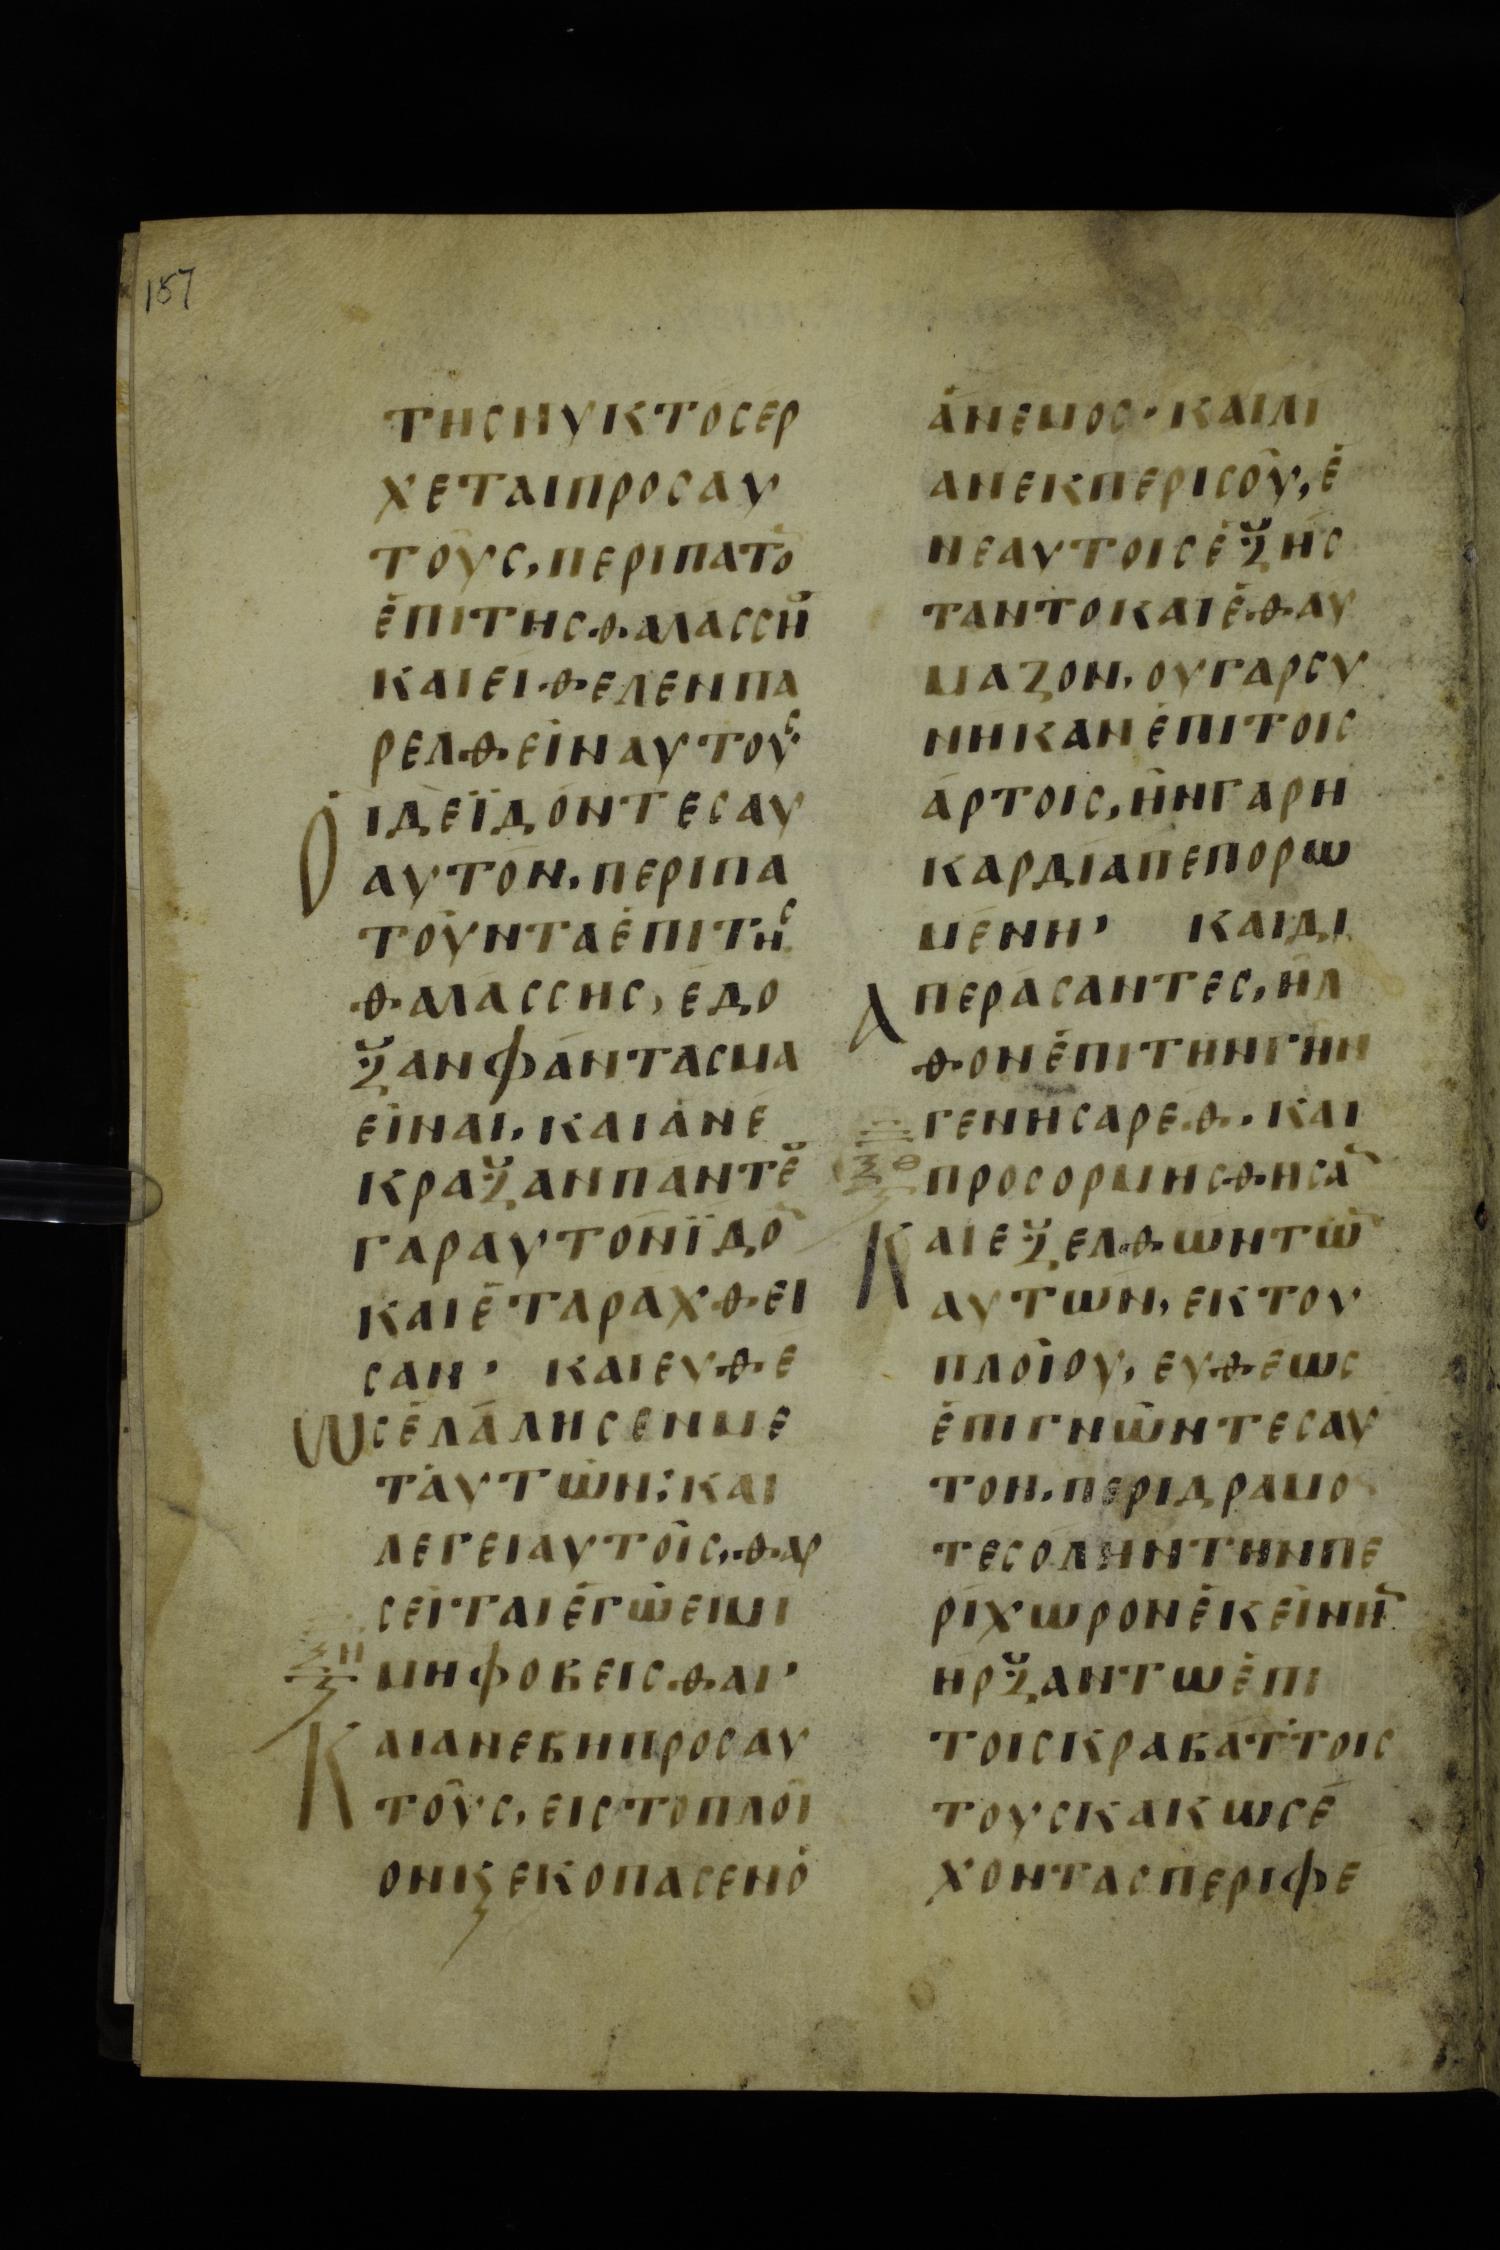 157
ΤΗΣΝΥΚΤΟΣΕΡ
ΧΕΤΑΙΠΡΟΣΑΥ
ΤΟΥΣ, ΠΕΡΙΠΑΤΟ
ΕΠΙΤΗΣΘΑΛΑΣΣΗ
ΚΑΙΕΙΘΕΛΕΝΠΑ
ΡΕΛΘΕΙΝΑΥΤΟΥΣ
ΟΙΔΕΪΔΟΝΤΕΣΑΥ
ΑΥΤΟΝ, ΠΕΡΙΠΑ
ΤΟΥΝΤΑΕΠΙΤΗΣ
ΘΑΛΑΣΣΗΣ, ΕΔΟ
ΞΑΝΦΑΝΤΑΣΜΑ
ΕΙΝΑΙ, ΚΑΙΑΝΕ
ΚΡΑΞΑΝΠΑΝΤΕ
ΓΑΡΑΥΤΟΝΪΔΟ
ΚΑΙΕΤΑΡΑΧΘΕΙ
ΣΑΝ, ΚΑΙΕΥΘΕ
ΩΣΕΛΑΛΗΣΕΝΜΕ
ΤΑΥΤΩΝ: ΚΑΙ
ΛΕΓΕΙΑΥΤΟΙΣ, ΘΑΡ
ΣΕΙΤΑΙΕΓΩΕΙΜΙ
ΞΗ ΜΗΦΟΒΕΙΣΘΑΙ,
ΚΑΙΑΝΕΒΗΠΡΟΣΑΥ
ΤΟΥΣ, ΕΙΣΤΟΠΛΟΙ
ΟΝΚϚΕΚΟΠΑΣΕΝΟ
ΑΝΕΜΟΣ· ΚΑΙΛΙ
ΑΝΕΚΠΕΡΙΣΟΥ, Ε
ΝΕΑΥΤΟΙΣΕΞΗΣ
ΤΑΝΤΟΚΑΙΕΘΑΥ
ΜΑΖΟΝ, ΟΥΓΑΡΣΥ
ΝΗΚΑΝΕΠΙΤΟΙΣ
ΑΡΤΟΙΣ, ΗΝΓΑΡΗ
ΚΑΡΔΙΑΠΕΠΟΡΩ
ΜΕΝΗ, ΚΑΙΔΙ
ΑΠΕΡΑΣΑΝΤΕΣ, ΗΛ
ΘΟΝΕΠΙΤΗΝΓΗΝ
ΓΕΝΗΣΑΡΕΘ. ΚΑΙ
ΞΘ ΠΡΟΣΟΡΜΗΣΘΗΣΑ
ΚΑΙΕΞΕΛΘΩΝΤΩ
ΑΥΤΩΝ, ΕΚΤΟΥ
ΠΛΟΙΟΥ, ΕΥΘΕΩΣ
ΕΠΙΓΝΩΝΤΕΣΑΥ
ΤΟΝ, ΠΕΡΙΔΡΑΜΟ
ΤΕΣΟΛΗΝΤΗΝΠΕ
ΡΙΧΩΡΟΝΕΚΕΙΝΗ
ΗΡΞΑΝΤΩΕΠΙ
ΤΟΙΣΚΡΑΒΑΤΤΟΙΣ
ΤΟΥΣΚΑΚΩΣΕ
ΧΟΝΤΑΣΠΕΡΙΦΕ